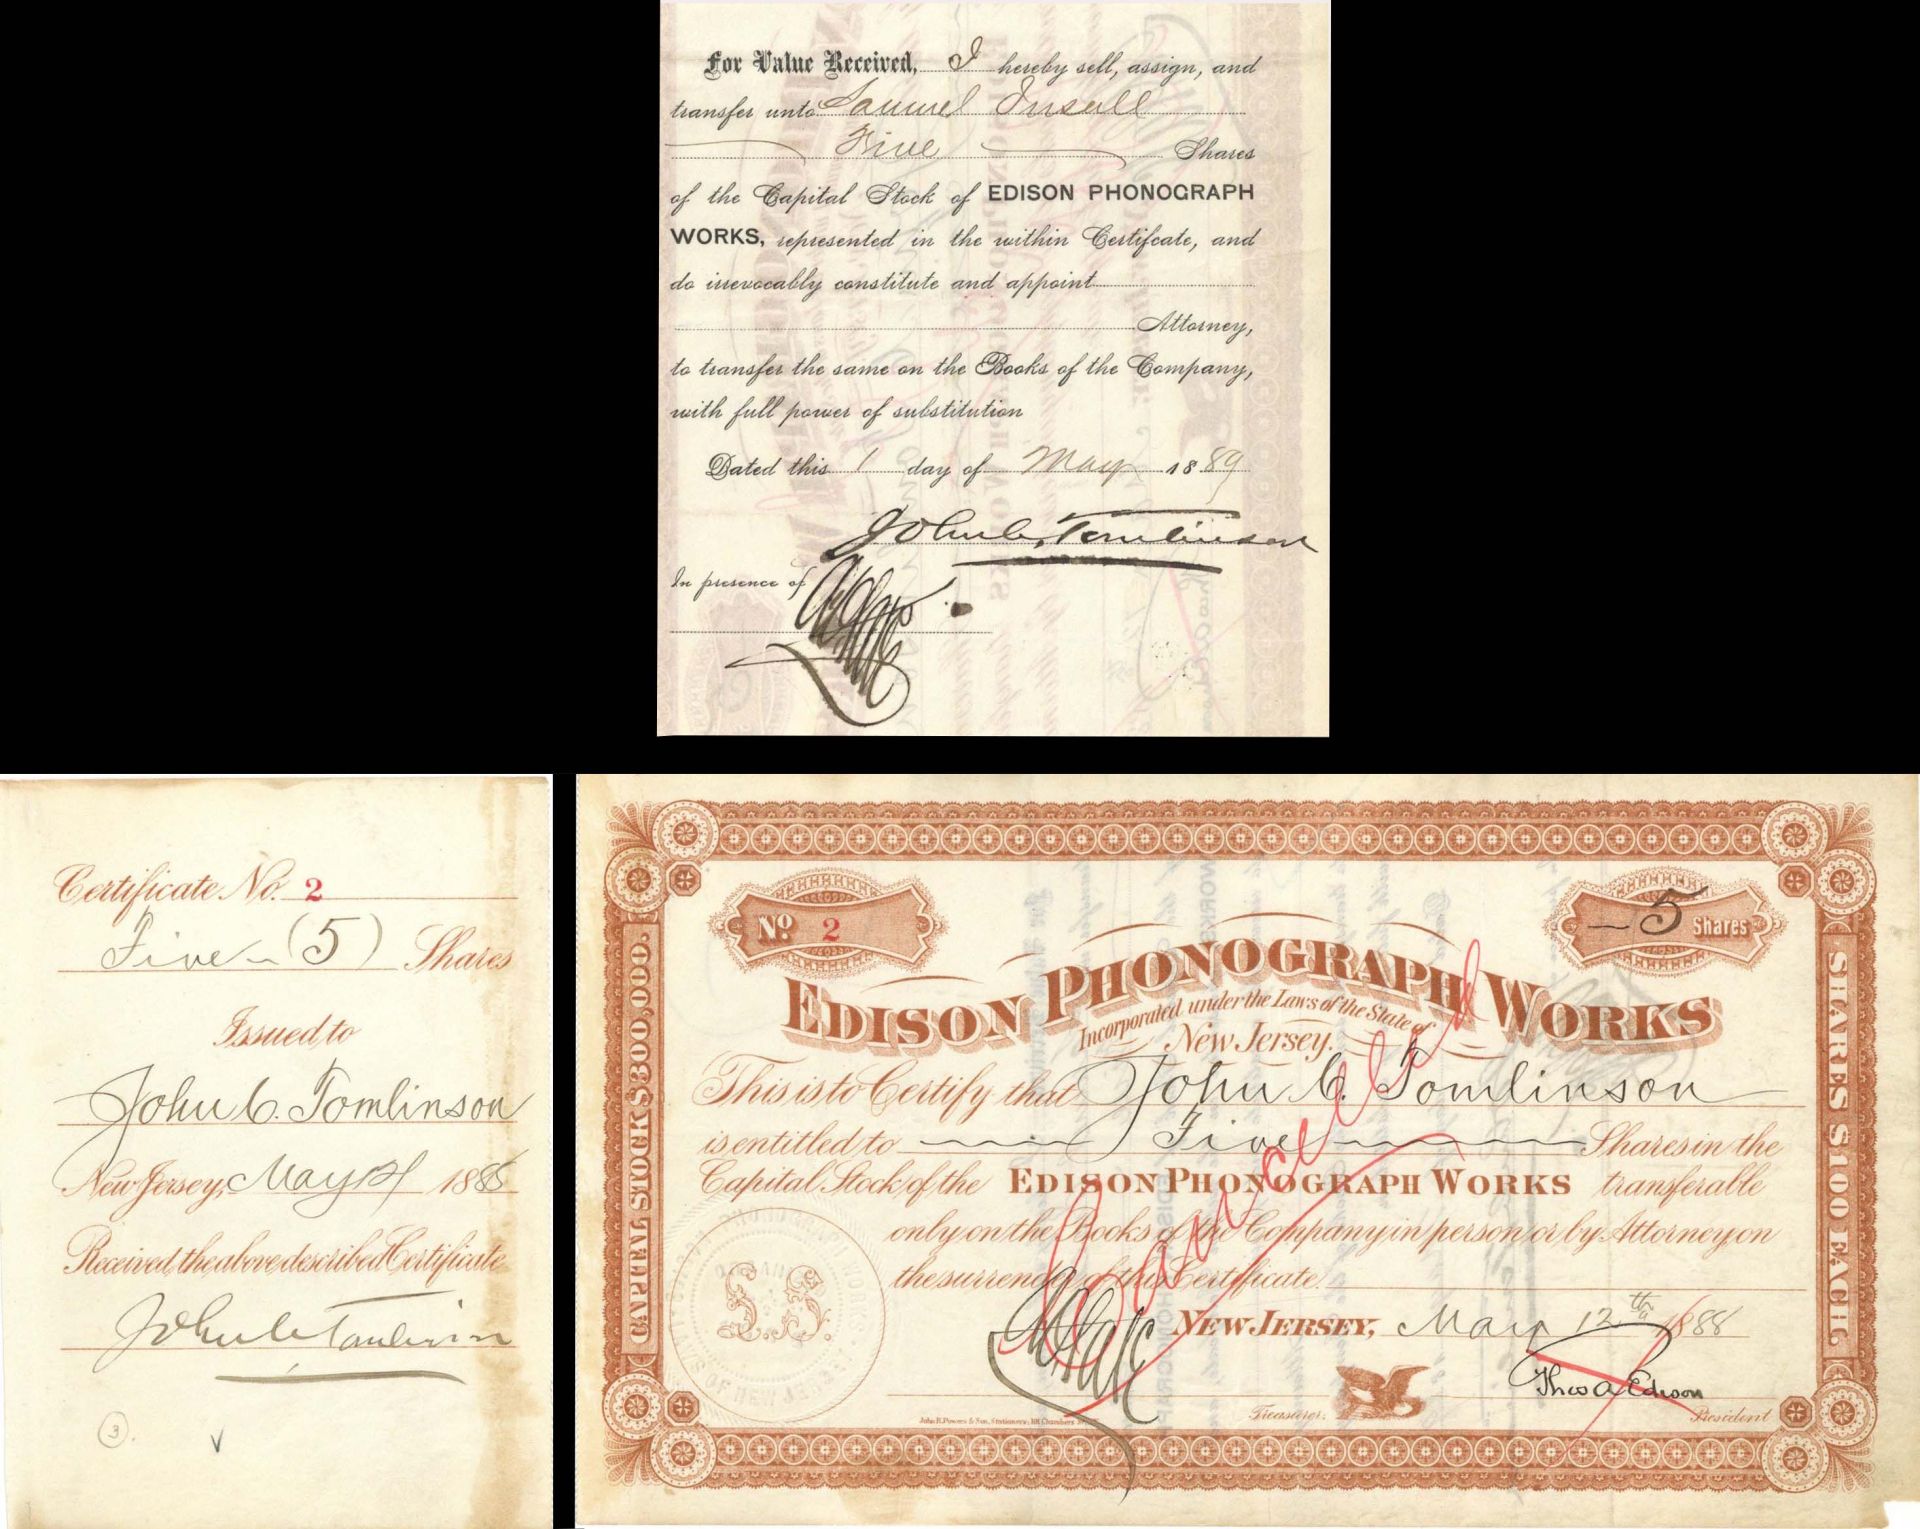 For Value Received, I hereby sell, assign, and
transfer unto Samuel Insull
Five Shares
of the Capital Stock of EDISON PHONOGRAPH
WORKS, represented in the within Certifcate, and
do irrevocably constitute and appoint
Attorney,
to transfer the same on the Books of the Company,
with full power of substitution
Dated this 1 day of May 1889
John C. Tomlinson
In presence of
Certificate No. 2
Five (5) Shares
Issued to
John C. Tomlinson
New Jersey, May 12 1888
Received the above described Certificate
John C Tomlinson
3.
No. 2
5 Shares
EDISON PHONOGRAPH WORKS
Incorporated under the Laws of the State of
New Jersey.
This is to Certify that John C. Tomlinson
is entitled to Five Shares in the
Capital Stock of the EDISON PHONOGRAPH WORKS transferable
only on the Books of the Company in person or by Attorney on
the surrender of this Certificate.
NEW JERSEY, May 12th 1888
Thos A Edison
Treasurer.
President
John R. Powers & Son, Stationers, 108 Chambers St.
CAPITAL STOCK $300,000.
SHARES $100 EACH.
Cancelled